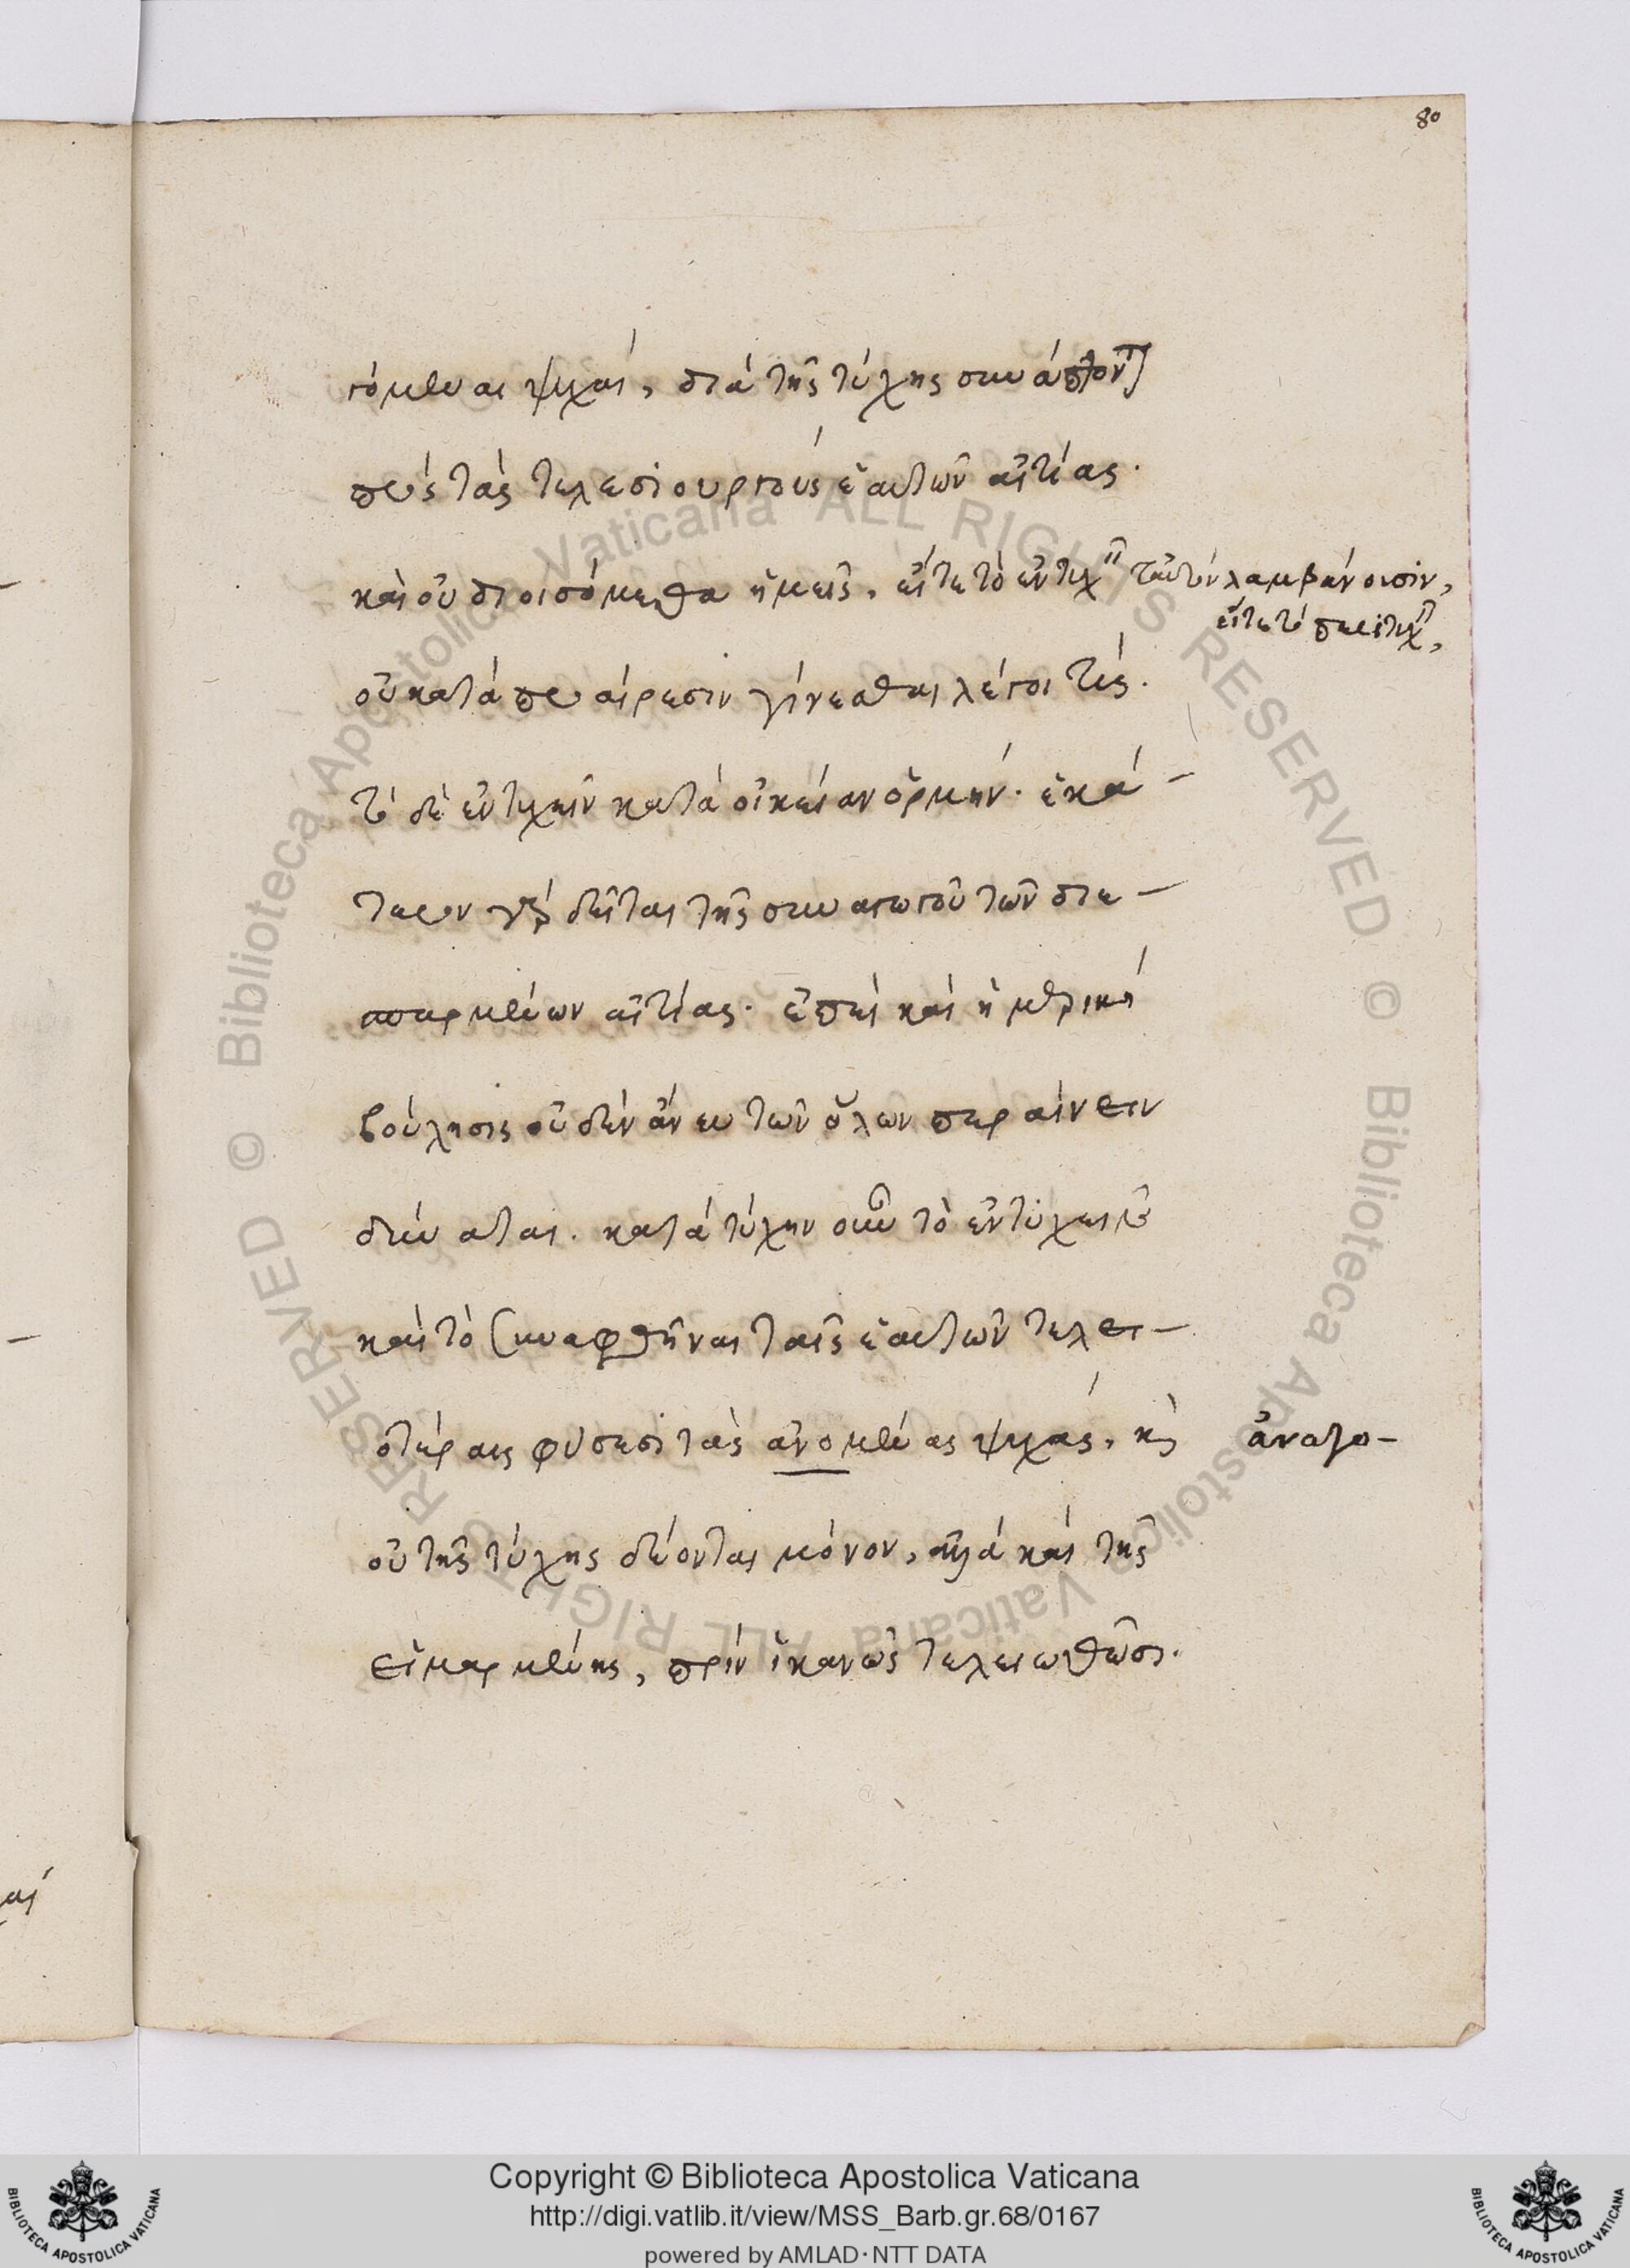 80
γόμεναι ψυχαί, διὰ τῆς τύχης συνάπτον
πρὸς τὰς τελεσιουργοὺς ἑαυτῶν αἰτίας.
καὶ οὐ διοισόμεθα ἡμεῖς, εἴτε τὸ ἐντυχ ταὐτὸν λαμβάνοισιν,
εἴτε τὸ περιτυχ,
οὐ κατὰ προαίρεσιν γίνεσθαι λέγοι τίς.
τὸ δὲ ἐντυχεῖν κατὰ οἰκείαν ὁρμήν. ἑκά-
τερον γὰρ δεῖται τῆς συναγωγοῦ τῶν διε-
σπαρμένων αἰτίας. ἐπεὶ καὶ ἡ μερικὴ
βούλησις οὐδὲν ἄνευ τῶν ὅλων περαίνειν
δύναται. κατὰ τύχην οὖν τὸ ἐντύχειν
καὶ τὸ συναφθῆναι ταῖς ἑαυτῶν τελει-
οτέραις φύσεσι τὰς ἀνομένας ψυχάς, κὶ ἀναγο-
οὐ τῆς τύχης δέονται μόνον, ἀλλὰ καὶ τῆς
εἱμαρμένης, πρὶν ἱκανῶς τελειωθῶσι.
αί
© Biblioteca Apostolica Vaticana ALL RIGHTS RESERVED
© Biblioteca Apostolica Vaticana ALL RIGHTS RESERVED
Copyright © Biblioteca Apostolica Vaticana
http://digi.vatlib.it/view/MSS_Barb.gr.68/0167
powered by AMLAD·NTT DATA
BIBLIOTECA APOSTOLICA VATICANA
BIBLIOTECA APOSTOLICA VATICANA